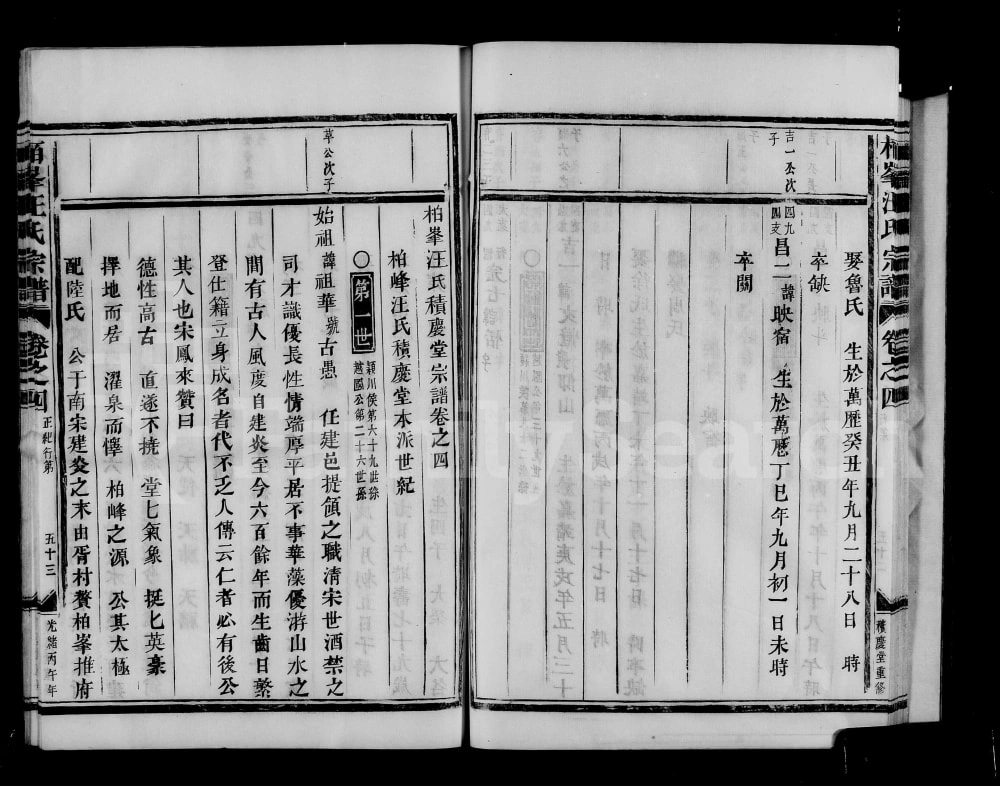 柏峯汪氏宗譜
卷之四
積慶堂重修
娶魯氏 生於萬歷癸丑年九月二十八日 時
卒缺
吉一公次子
四九四支
昌二諱映宿 生於萬厯丁巳年九月初一日未時
卒闕
柏峯汪氏積慶堂宗譜卷之四
柏峰汪氏積慶堂本派世紀
〇第一世
潁川侯第六十九世孫
越國公第二十六世孫
草公次子
始祖諱祖華號古愚 任建邑提領之職清宋世酒禁之
司才識優長性情端厚平居不事華藻優游山水之
間有古人風度自建炎至今六百餘年而生齒日繁
登仕籍立身成名者代不乏人傳云仁者必有後公
其人也宋鳳來贊曰
德性高古 直遂不撓 堂七氣象 挺匕英豪
擇地而居 濯泉而懌 柏峰之源 公其太極
配陸氏 公于南宋建炎之末由胥村贅柏峯推府
柏峯汪氏宗譜
卷之四
正紀行第
五十三
光緒丙午年